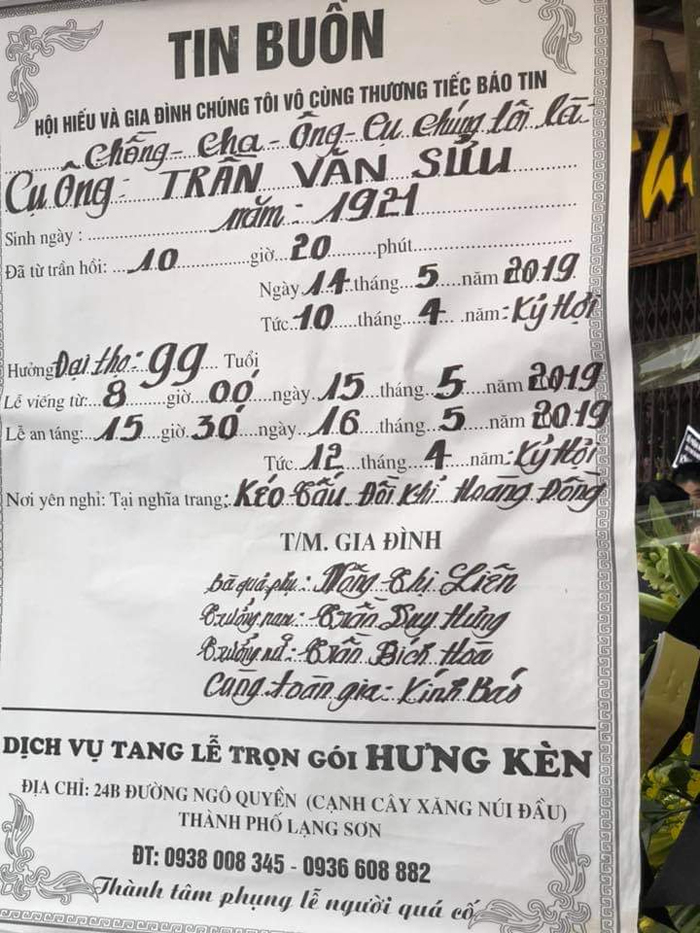 TIN BUỒN
HỘI HIẾU VÀ GIA ĐÌNH CHÚNG TÔI VÔ CÙNG THƯƠNG TIẾC BÁO TIN
Chồng - Cha - Ông - Cụ chúng tôi là
Cụ Ông: TRẦN VĂN SỬU
Sinh ngày : năm: 1921
Đã từ trần hồi: 10 giờ 20 phút
Ngày 14 tháng 5 năm 2019
Tức 10 tháng 4 năm: Kỷ Hợi
Hưởng Đại thọ: 99 Tuổi
Lễ viếng từ: 8 giờ 00 ngày 15 tháng 5 năm 2019
Lễ an táng: 15 giờ 30 ngày 16 tháng 5 năm 2019
Tức 12 tháng 4 năm: Kỷ Hợi
Nơi yên nghỉ: Tại nghĩa trang: Kéo Tấu Đồi Khỉ Hoàng Đồng
T/M. GIA ĐÌNH
bà quả phụ: Nông Thị Liên
Trưởng nam: Trần Duy Hưng
Trưởng nữ: Trần Bích Hòa
Cùng toàn gia - Kính Báo
DỊCH VỤ TANG LỄ TRỌN GÓI HƯNG KÈN
ĐỊA CHỈ: 24B ĐƯỜNG NGÔ QUYỀN (CẠNH CÂY XĂNG NÚI ĐẦU)
THÀNH PHỐ LẠNG SƠN
ĐT: 0938 008 345 - 0936 608 882
Thành tâm phụng lễ người quá cố